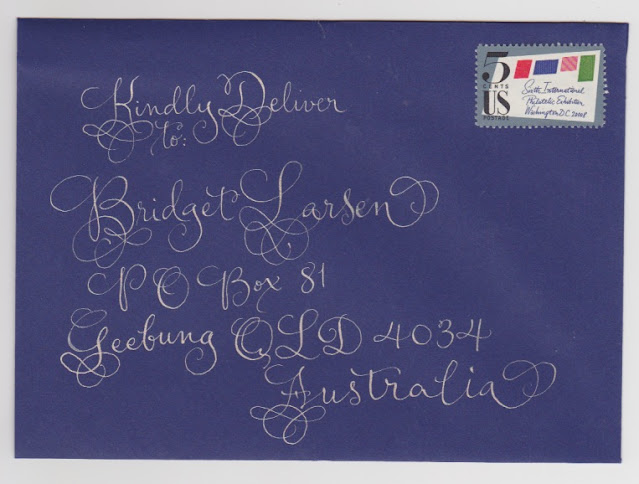 Kindly Deliver
to:
Bridget Larsen
PO Box 81
Geebung QLD 4034
Australia
5
CENTS
US
POSTAGE
Sixth International
Philatelic Exhibition
Washington D.C. 20008